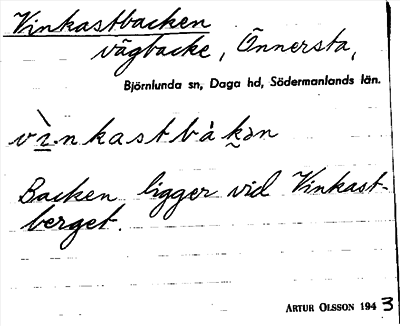 Vinkastbacken
vägbacke, Önnersta,
Björnlunda sn, Daga hd, Södermanlands län.
vì̱nkastbàk̬ən
Backen ligger vid Vinkast-
berget.
ARTUR OLSSON 1943